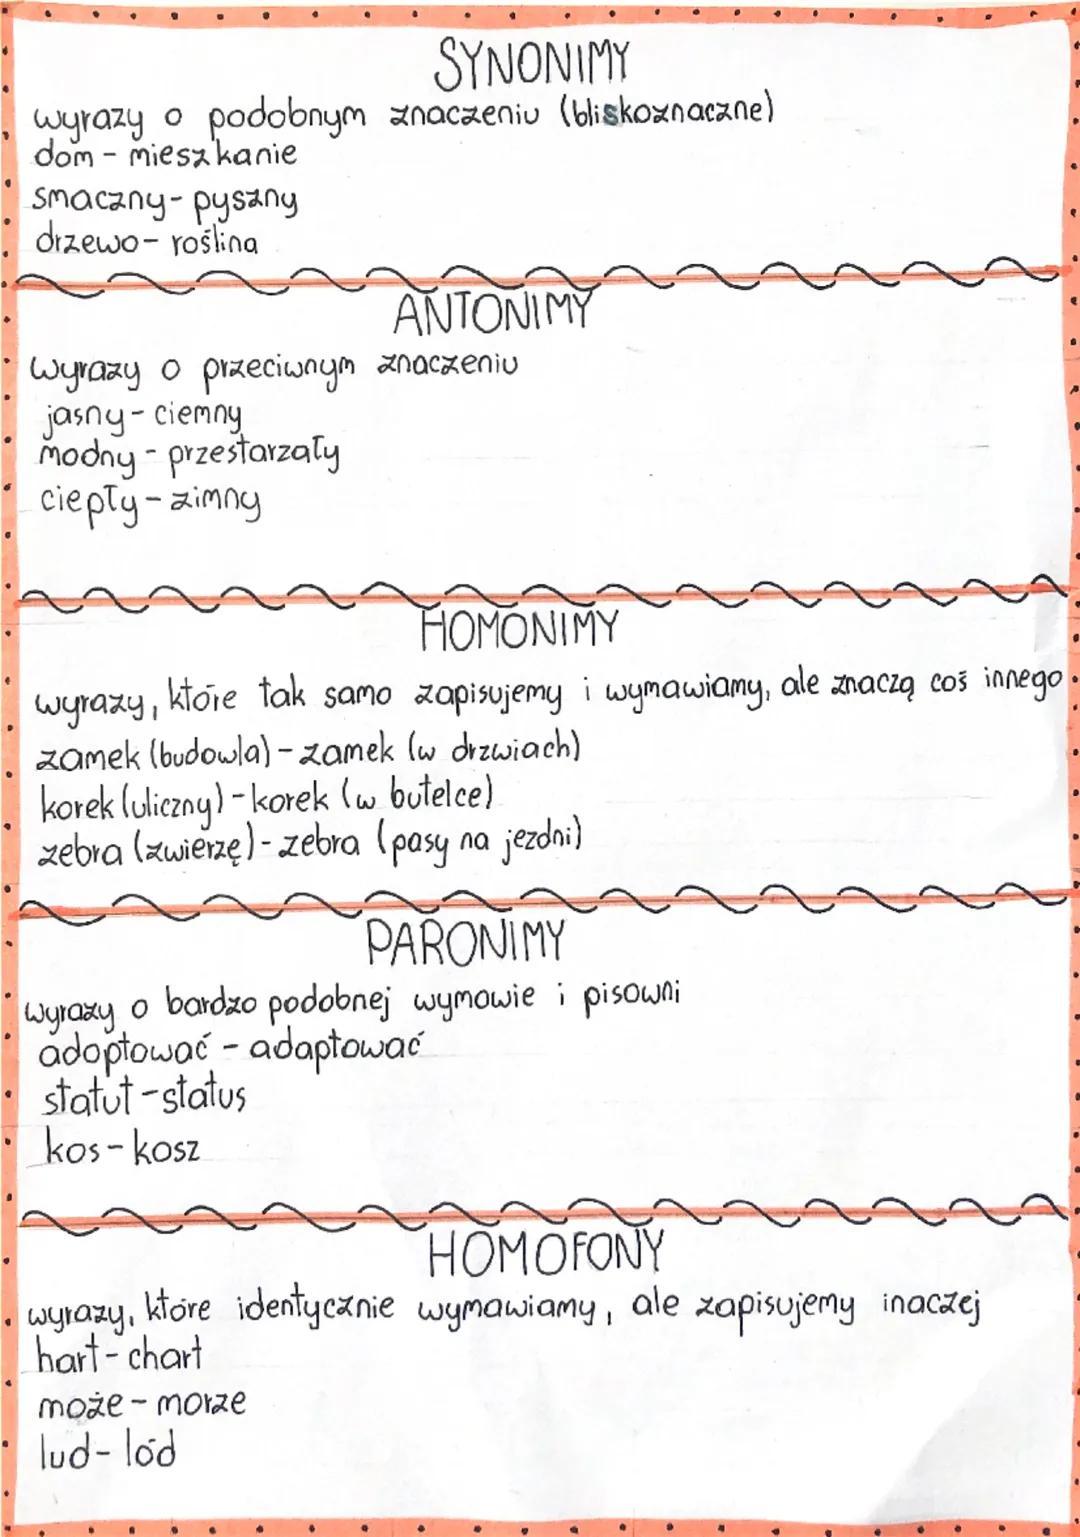 SYNONIMY
wyrazy o podobnym znaczeniu (bliskoznaczne)
dom - mieszkanie
smaczny - pyszny
drzewo - roślina
ANTONIMY
wyrazy o przeciwnym znaczeniu
jasny - ciemny
modny - przestarzały
ciepły - zimny
HOMONIMY
wyrazy, które tak samo zapisujemy i wymawiamy, ale znaczą coś innego
zamek (budowla) - zamek (w drzwiach)
korek (uliczny) - korek (w butelce)
zebra (zwierzę) - zebra (pasy na jezdni)
PARONIMY
wyrazy o bardzo podobnej wymowie i pisowni
adoptować - adaptować
statut - status
kos - kosz
HOMOFONY
wyrazy, które identycznie wymawiamy, ale zapisujemy inaczej
hart - chart
może - morze
lud - lód